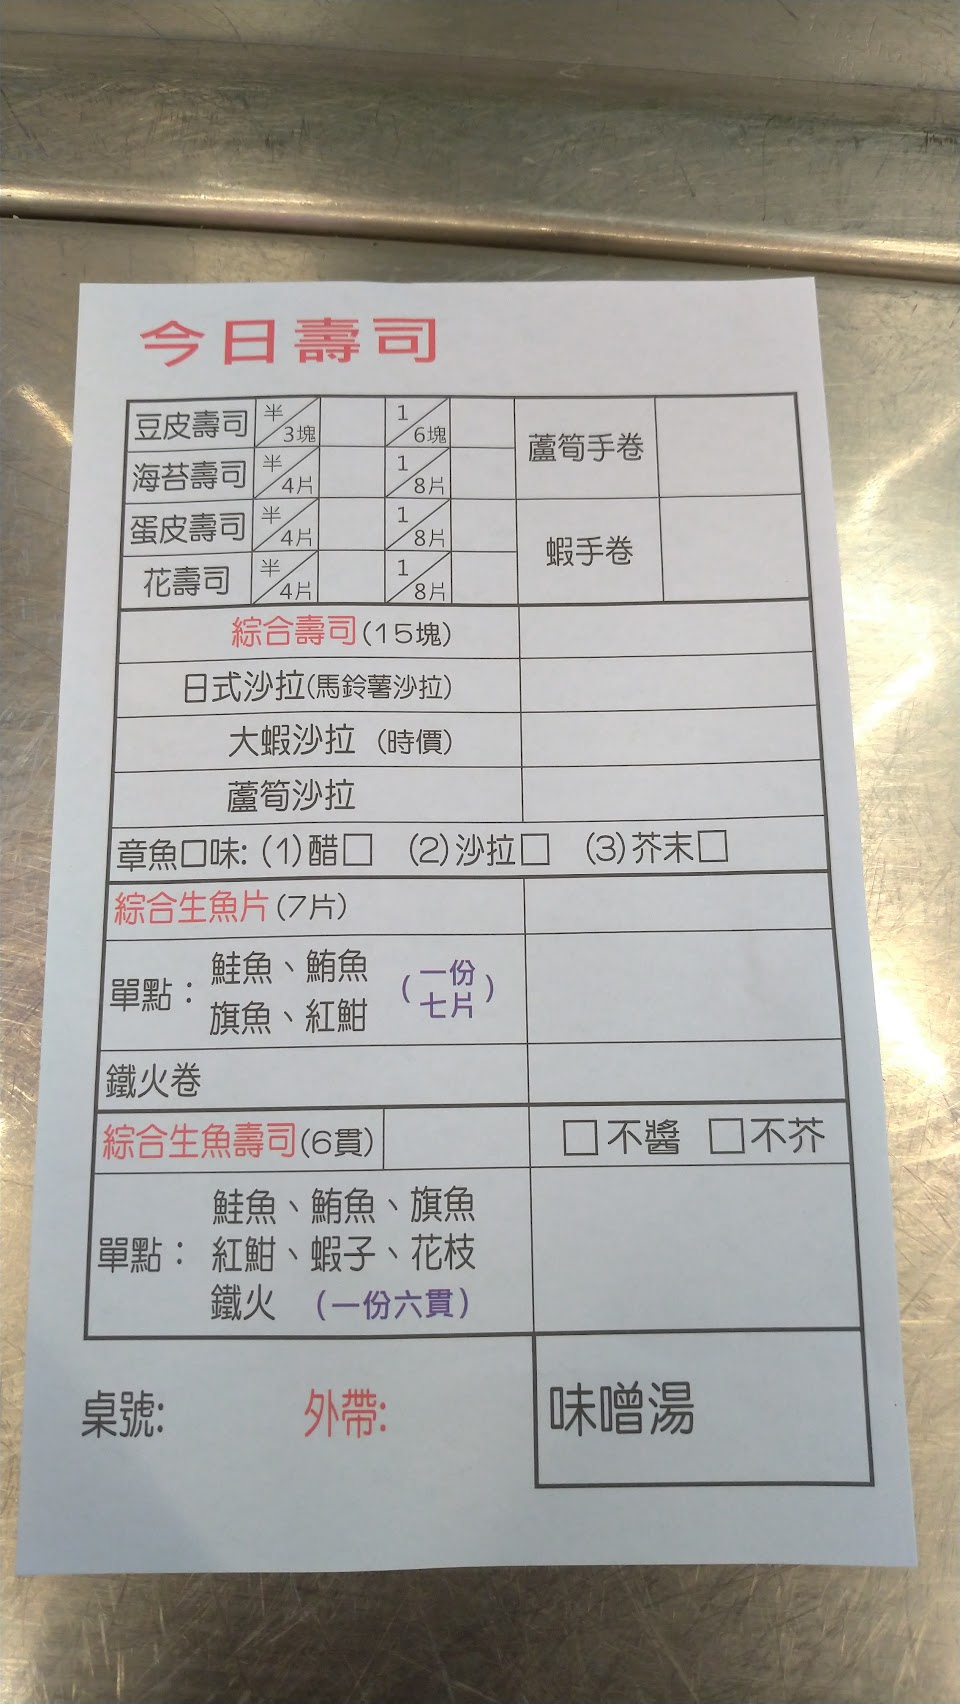 今日壽司
豆皮壽司 半/3塊 1/6塊 蘆筍手卷
海苔壽司 半/4片 1/8片
蛋皮壽司 半/4片 1/8片 蝦手卷
花壽司 半/4片 1/8片
綜合壽司(15塊)
日式沙拉(馬鈴薯沙拉)
大蝦沙拉 (時價)
蘆筍沙拉
章魚口味: (1)醋□ (2)沙拉□ (3)芥末□
綜合生魚片(7片)
單點： 鮭魚、鮪魚 (一份
旗魚、紅魽 七片)
鐵火卷
綜合生魚壽司(6貫) □不醬 □不芥
鮭魚、鮪魚、旗魚
單點： 紅魽、蝦子、花枝
鐵火 (一份六貫)
桌號: 外帶: 味噌湯